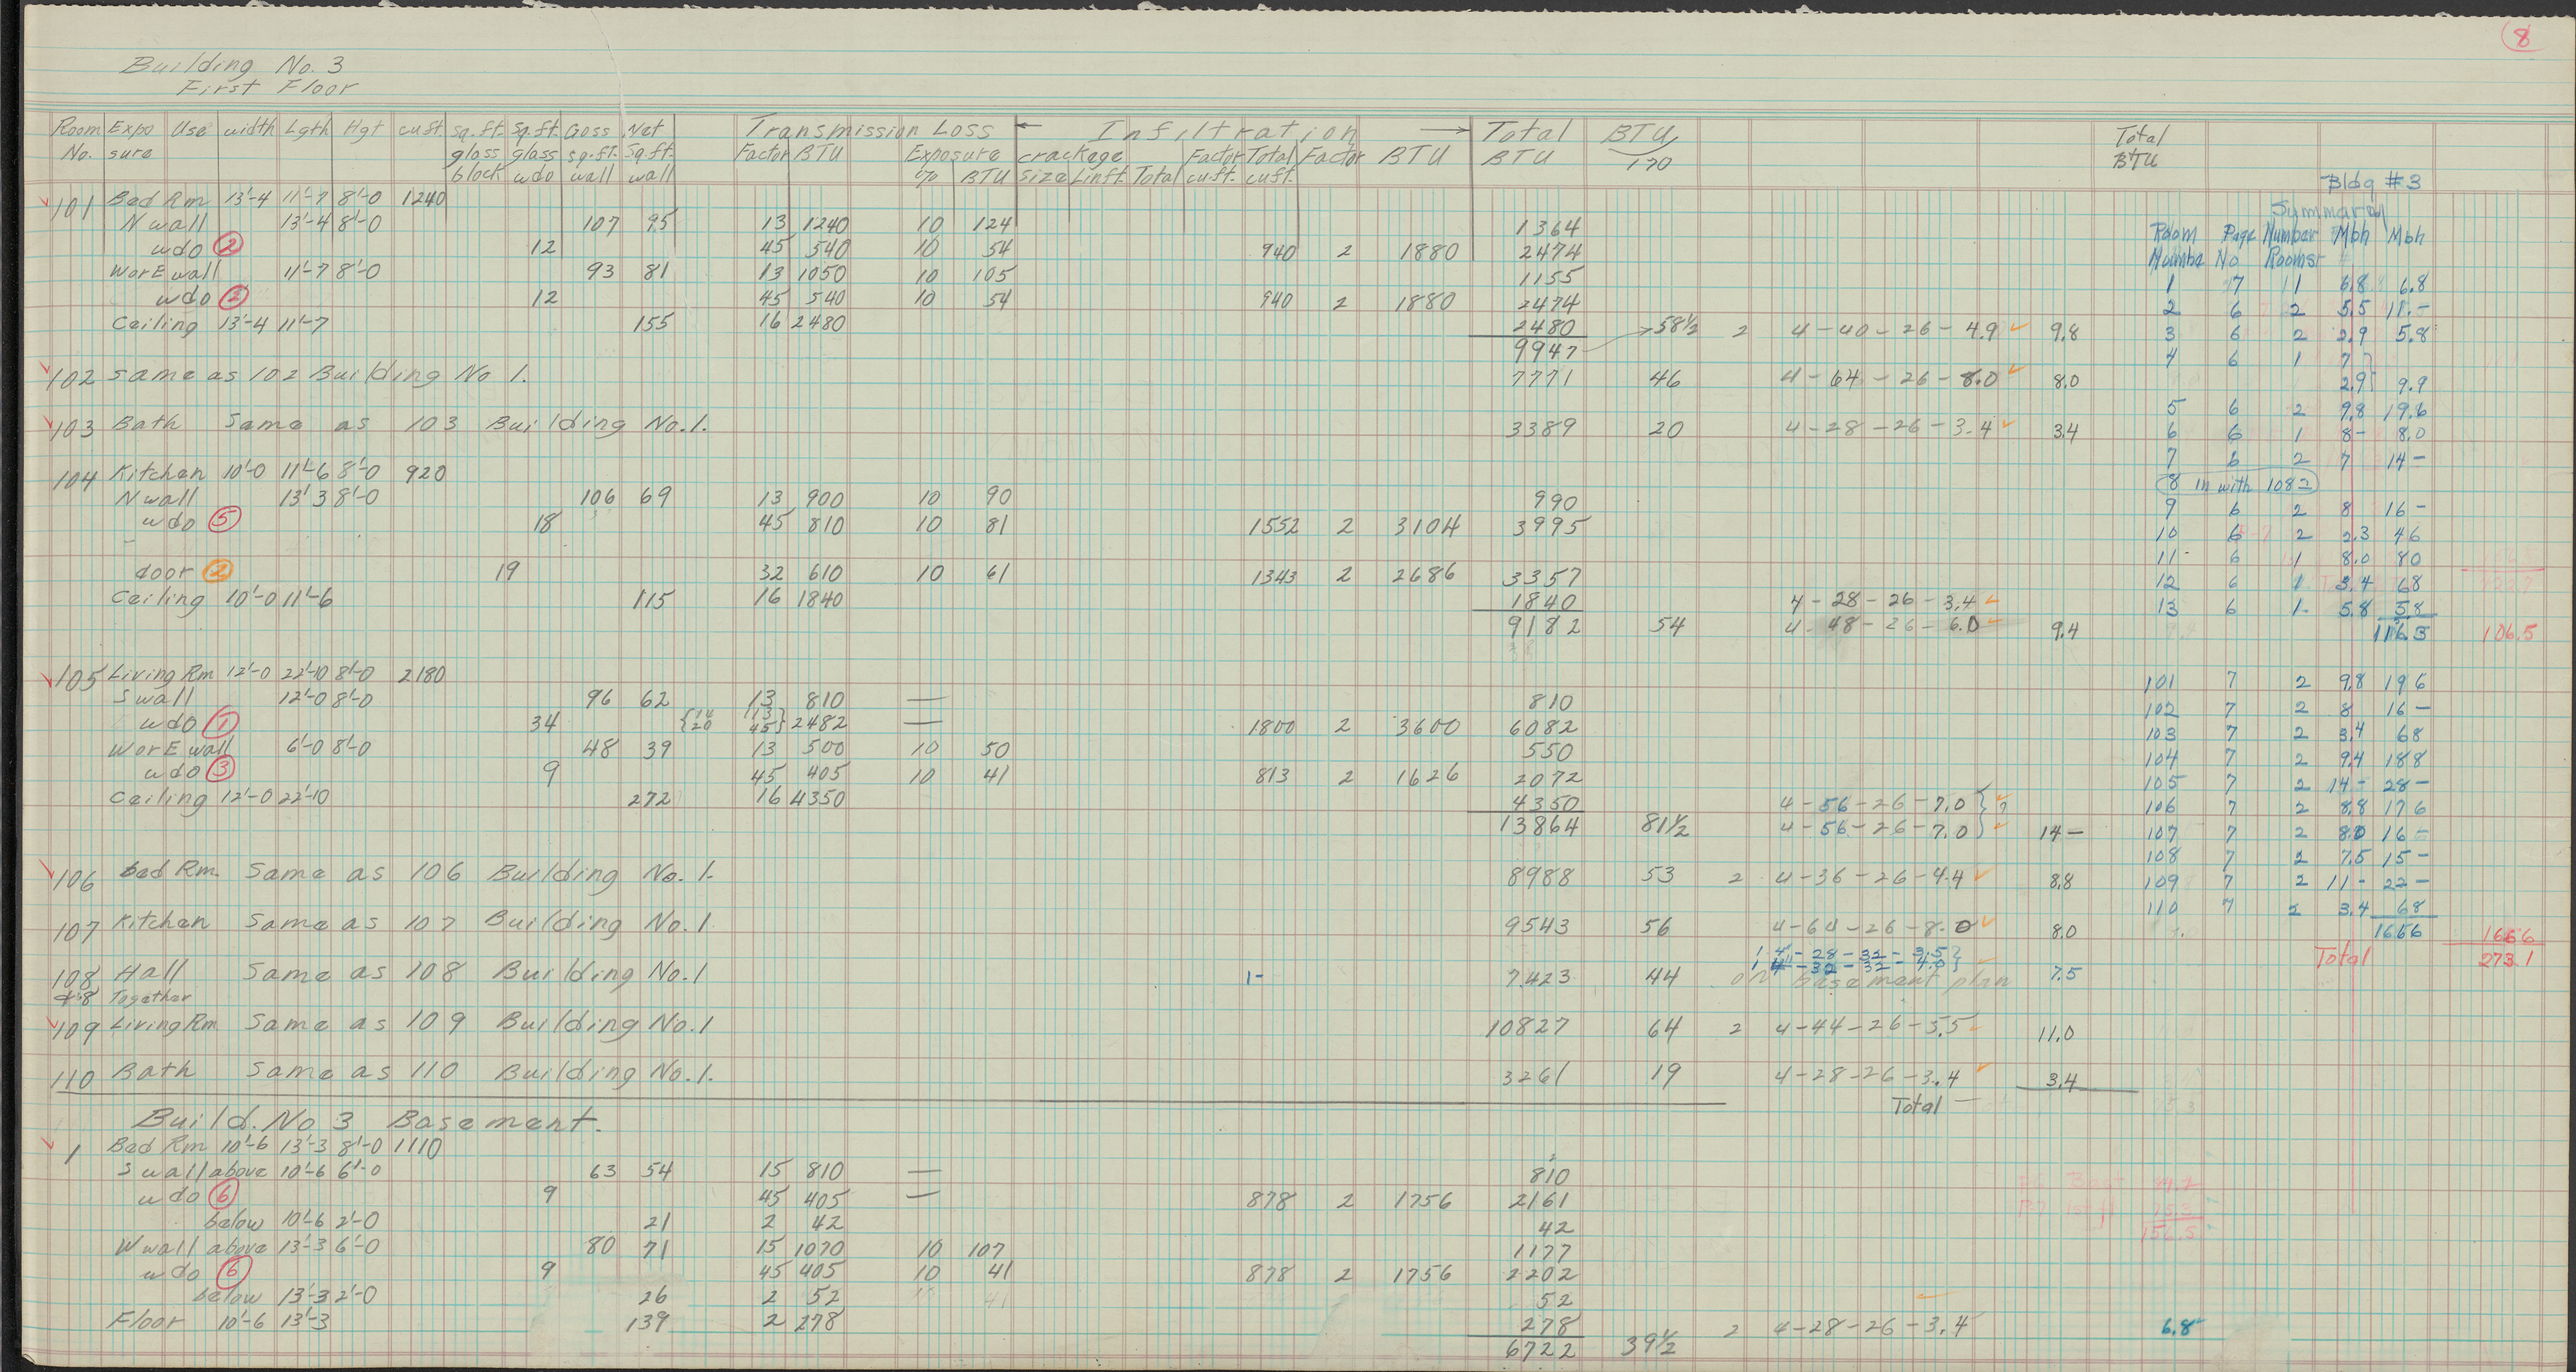 8
Building No. 3
First Floor
Room No. Expo sure Use width Lgth Hgt cu ft. sq.ft. glass block sq.ft. glass wdo Goss sq.ft. wall Net sq.ft. wall Transmission Loss Factor BTU Exposure % BTU ← Infiltration → crackage size Lin ft. Total Factor cu.ft. Total cu.ft. Factor BTU Total BTU BTU/170 Total BTU
101 Bed Rm 13'-4 11'-7 8'-0 1240
N wall 13'-4 8'-0 107 95 13 1240 10 124 1364
wdo 2 12 45 540 10 54 940 2 1880 2474
W or E wall 11'-7 8'-0 93 81 13 1050 10 105 1155
wdo 2 12 45 540 10 54 940 2 1880 2474
Ceiling 13'-4 11'-7 155 16 2480 2480
9947 58½ 2 4-40-26-4.9 9.8
102 same as 102 Building No 1. 7771 46 4-64-26-8.0 8.0
103 Bath Same as 103 Building No.1. 3389 20 4-28-26-3.4 3.4
104 Kitchen 10'-0 11'-6 8'-0 920
N wall 13'3 8'-0 106 69 13 900 10 90 990
wdo 5 18 45 810 10 81 1552 2 3104 3995
door 2 19 32 610 10 61 1343 2 2686 3357
Ceiling 10'-0 11'-6 115 16 1840 1840 4-28-26-3.4
9182 54 4-48-26-6.0 9.4
105 Living Rm 12'-0 22'-10 8'-0 2180
S wall 12'-0 8'-0 96 62 13 810 — 810
wdo 1 34 {14 20 13 45} 2482 — 1800 2 3600 6082
W or E wall 6'-0 8'-0 48 39 13 500 10 50 550
wdo 3 9 45 405 10 41 813 2 1626 2072
Ceiling 12'-0 22'-10 272 16 4350 4350 4-56-26-7.0 } ?
13864 81½ 4-56-26-7.0 14—
106 bed Rm. Same as 106 Building No. 1. 8988 53 2 4-36-26-4.4 8.8
107 Kitchen Same as 107 Building No.1 9543 56 4-64-26-8.0 8.0
1 4"-28-32-3.5}
108 Hall Same as 108 Building No.1 1- 7423 44 1 4-32-32-4.0} 7.5
&8 Together on basement plan
109 Living Rm Same as 109 Building No.1 10827 64 2 4-44-26-5.5 11.0
110 Bath Same as 110 Building No.1. 3261 19 4-28-26-3.4 3.4
Total
Build. No 3 Basement.
1 Bed Rm 10'-6 13'-3 8'-0 1110
S wall above 10'-6 6'-0 63 54 15 810 — 810
wdo 6 9 45 405 — 878 2 1756 2161
below 10'-6 2'-0 21 2 42 42
W wall above 13'-3 6'-0 80 71 15 1070 10 107 1177
wdo 6 9 45 405 10 41 878 2 1756 2202
below 13'-3 2'-0 26 2 52 52
Floor 10'-6 13'-3 139 2 278 278 2 4-28-26-3.4 6.8
6722 39½
Bldg #3
Summary
Room Number Page No Number Rooms Mbh Mbh
1 7 1 6.8 6.8
2 6 2 5.5 11.-
3 6 2 2.9 5.8
4 6 1 7}
2.9} 9.9
5 6 2 9.8 19.6
6 6 1 8- 8.0
7 6 2 7 14-
8 in with 108
9 6 2 8 16-
10 6 2 2.3 46
11 6 1 8.0 80
12 6 1 3.4 68
13 6 1 5.8 58
116.5 106.5
101 7 2 9.8 196
102 7 2 8 16-
103 7 2 3.4 68
104 7 2 9.4 188
105 7 2 14- 28-
106 7 2 8.8 176
107 7 2 8.0 16-
108 7 2 7.5 15-
109 7 2 11- 22-
110 7 2 3.4 68
1666 1666
Total 2731
156.5